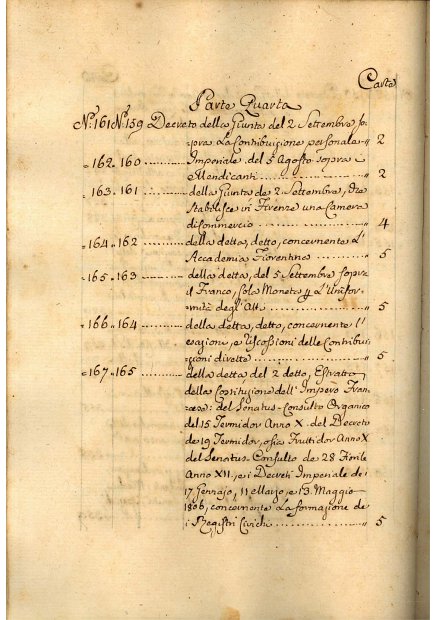 Carte
Parte Quarta
N.° 161 N.° 159 Decreto della Giunta del 2 Settembre so=
pra la Contribuzione personale " 2
" 162 " 160 ............ Imperiale del 5 Agosto sopra i
Mendicanti ............ " 2
" 163 " 161 ............ della Giunta de 2 Settembre, che
stabilisce in Firenze una Camera
di Commercio ............ " 4
" 164 " 162 ............ della detta, detto, concernente l'
Accademia Fiorentina ............ " 5
" 165 " 163 ............ della detta, del 5 Settembre sopra
il Franco, sola Moneta p l'Unifor=
mità degl'Atti ............ " 5
" 166 " 164 ............ della detta, detto, concernente l'
esazione, e riscossioni delle Contribu=
zioni dirette ............ " 5
" 167 " 165 ............ della detta del 2 detto, Estratto
della Costituzione dell'Impero Fran=
cese: del Senatus-Consulto Organico
del 15 Termidor Anno X. del Decreto
de 19 Termidor, osia Fruttidor Anno X
del Senatus-Consulto de 28 Fiorile
Anno XII, e i Decreti Imperiale de i
17 Gennajo, 11 Marzo, e 13. Maggio
1806, concernente la formazione de
i Registri Civichi ............ " 5